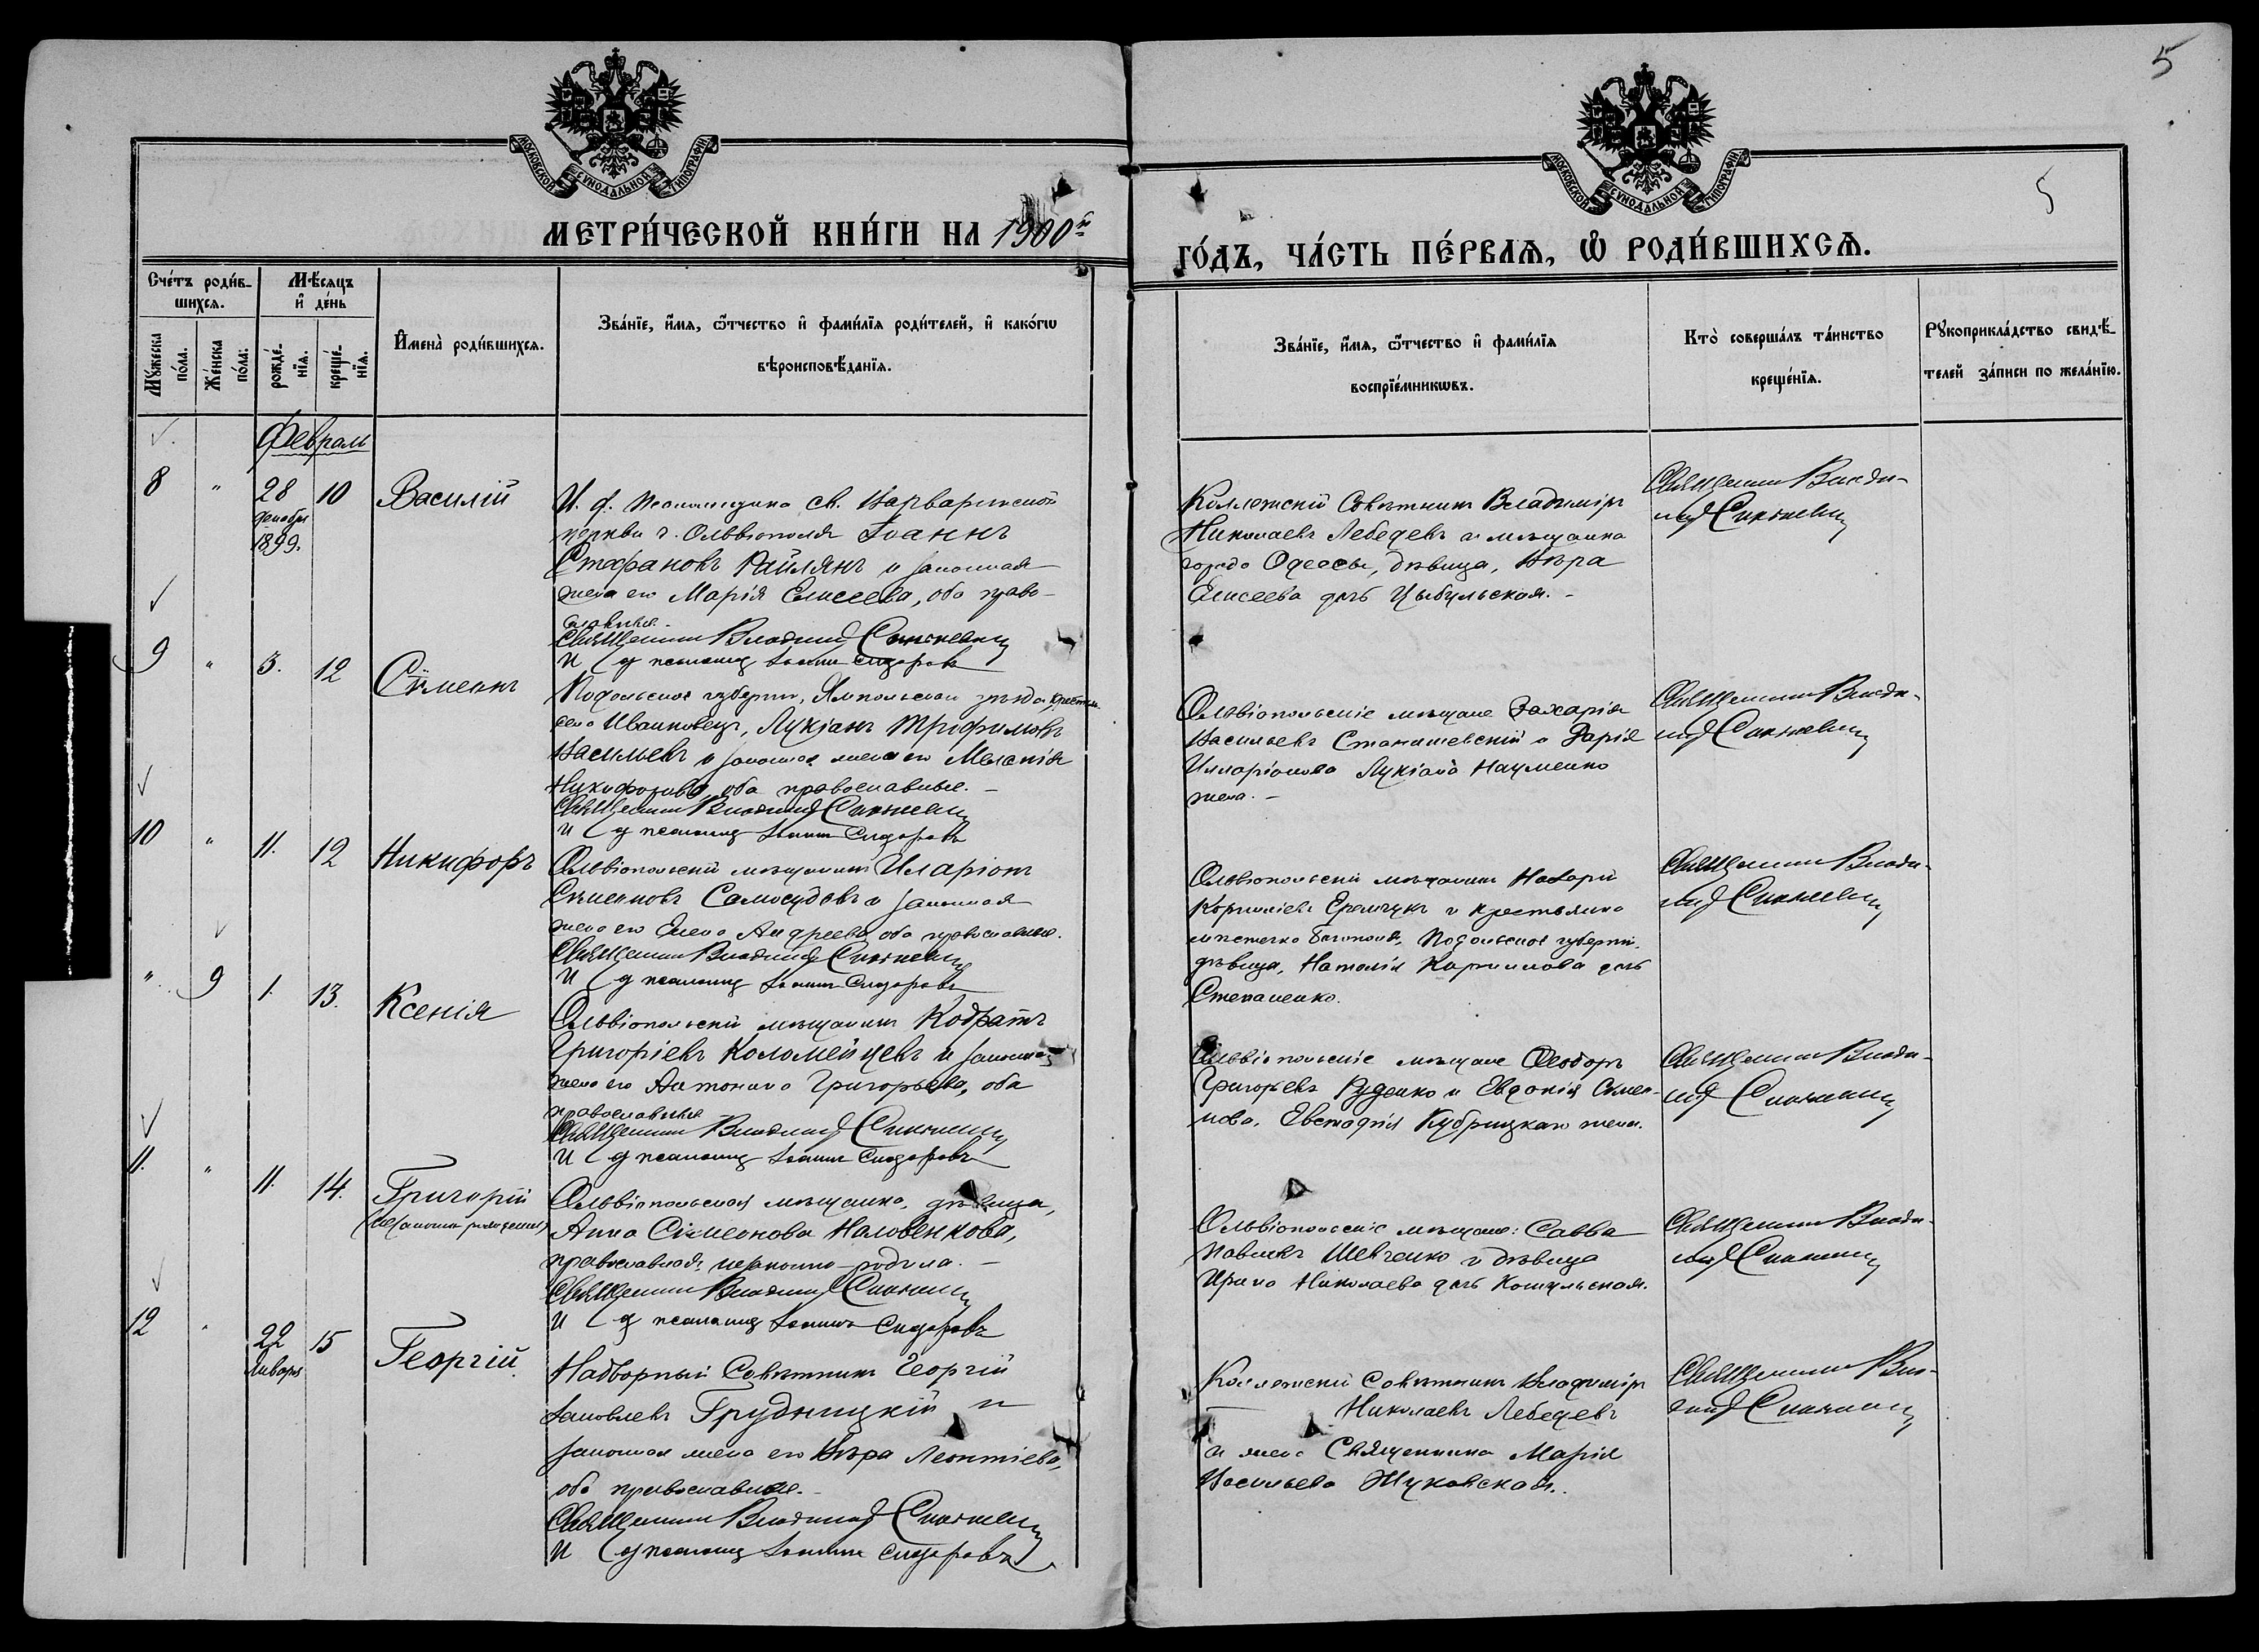 5
5
МОСКОВСКОЙ СѴНОДАЛЬНОЙ ТИПОГРАФІИ.
МОСКОВСКОЙ СѴНОДАЛЬНОЙ ТИПОГРАФІИ.
МЕТРИ́ЧЕСКОЙ КНИ́ГИ НА 1900й
ГО́ДЪ, ЧА́СТЬ ПЕ́РВАѦ, Ѽ РОДИ́ВШИХСѦ.
Сче́тъ роди́в-
шихсѧ.
Мѣ́сѧцъ
и҆ де́нь
Мꙋ́жеска
по́ла.
Же́нска
по́ла:
рожде́-
нїѧ.
креще́-
нїѧ.
И҆мена̀ роди́вшихсѧ.
Зва́нїе, и҆́мѧ, ѻ҆́тчество и҆ фами́лїѧ роди́телей, и҆ како́гѡ
вѣроисповѣ́данїѧ.
Зва́нїе, и҆́мѧ, ѻ҆́тчество и҆ фами́лїѧ
воспрїе́мникѡвъ.
Кто̀ соверша́лъ та́инство
креще́нїѧ.
Рꙋкоприкла́дство свидѣ́-
телей за́писи по жела́нїю.
Февраль
8 " 28 10 Василій
декабря
1899.
И. д. псаломщика св. Варваринской
церкви г. Ольвіополя Іоаннъ
Стефановъ Райлянъ и законная
жена его Марія Елисеева, оба право-
славные.
Священникъ Владимір
И д псаломщ Іоаннъ Сидоровъ
Коллежскій Совѣтникъ Владиміръ
Николаевъ Лебедевъ и мѣщанка
города Одессы, дѣвица, Вѣра
Елисеева дочь Цыбульская.-
Священникъ Влади-
мір
9 " 3. 12 Сѵмеонъ
Подольской губерніи, Ямпольскаго уѣзда, крестьян.
села Иванковецъ, Лукіанъ Трофимовъ
Васильевъ и законная жена его Меланія
Никифорова, оба православные.-
Священникъ Владимір
И д псаломщ Іоаннъ Сидоровъ
Ольвіопольскіе мѣщане Захарія
Васильевъ Станишевскій и Дарія
Илларіонова Лукіана Науменко
жена.-
Священникъ Влади-
мір
10 " 11. 12 Никифоръ
Ольвіопольскій мѣщанинъ Иларіонъ
Сѵмеоновъ Самосудовъ и законная
жена его Елена Андреева оба православные.
Священникъ Владимір
И д псаломщ Іоаннъ Сидоровъ
Ольвіопольскій мѣщанинъ Назарій
Корниліевъ Еремчукъ и крестьянка
мѣстечка Богополя, Подольской губерніи.
дѣвица, Наталія дочь
Степаненко.
Священникъ Влади-
мір
" 9 1. 13. Ксенія
Ольвіопольскій мѣщанинъ Кодратъ
Григоріевъ Коломейцевъ и законная
жена его Антонина Григорьева, оба
православные
Священникъ Владимір
И д псаломщ Іоаннъ Сидоровъ
Ольвіопольскіе мѣщане Ѳеодоръ
Григорьевъ Руденко и Евдокія Сѵмео-
нова, Евстафія Кубрицкаго жена.
Священникъ Влади-
мір
11. " 11. 14. Григорій
(незаконно рожденный)
Ольвіопольская мѣщанка, дѣвица,
Анна Сѵмеонова Наловенкова,
православная, незаконно родила.-
Священникъ Владимір
И д псаломщ Іоаннъ Сидоровъ
Ольвіопольскіе мѣщане: Савва
Павловъ Шевченко и дѣвица
Ирина Николаева дочь Кошульская.
Священникъ Влади-
мір
12 " 22 15 Георгій
Января
Надворный Совѣтникъ Георгій
Іаковлевъ Грудницкій и
законная жена его Вѣра Леонтіева,
оба православные.-
Священникъ Владимір
И д псаломщ Іоаннъ Сидоровъ
Коллежскій Совѣтникъ Владиміръ
Николаевъ Лебедевъ
и жена Священника Марія
Васильева Жуковская.
Священникъ Вла-
димір